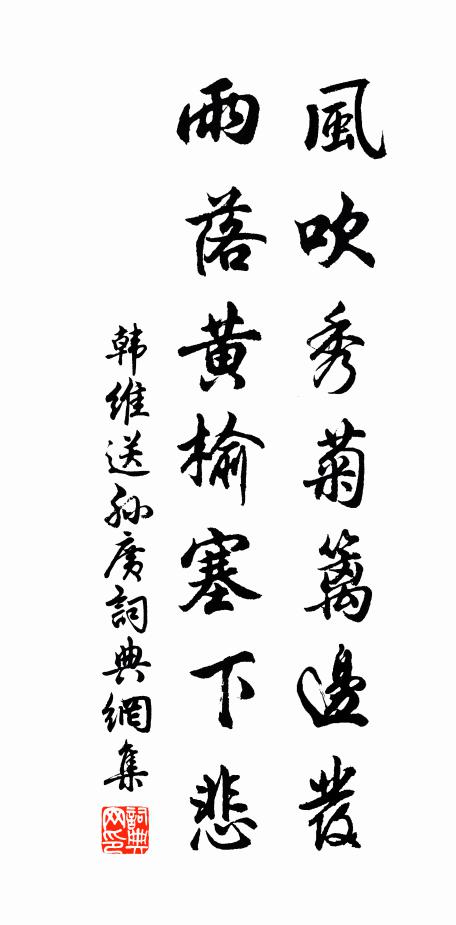 風吹秀菊籬邊發
雨落黃榆塞下悲
韩維送孙廣詞典網集
詞典网印